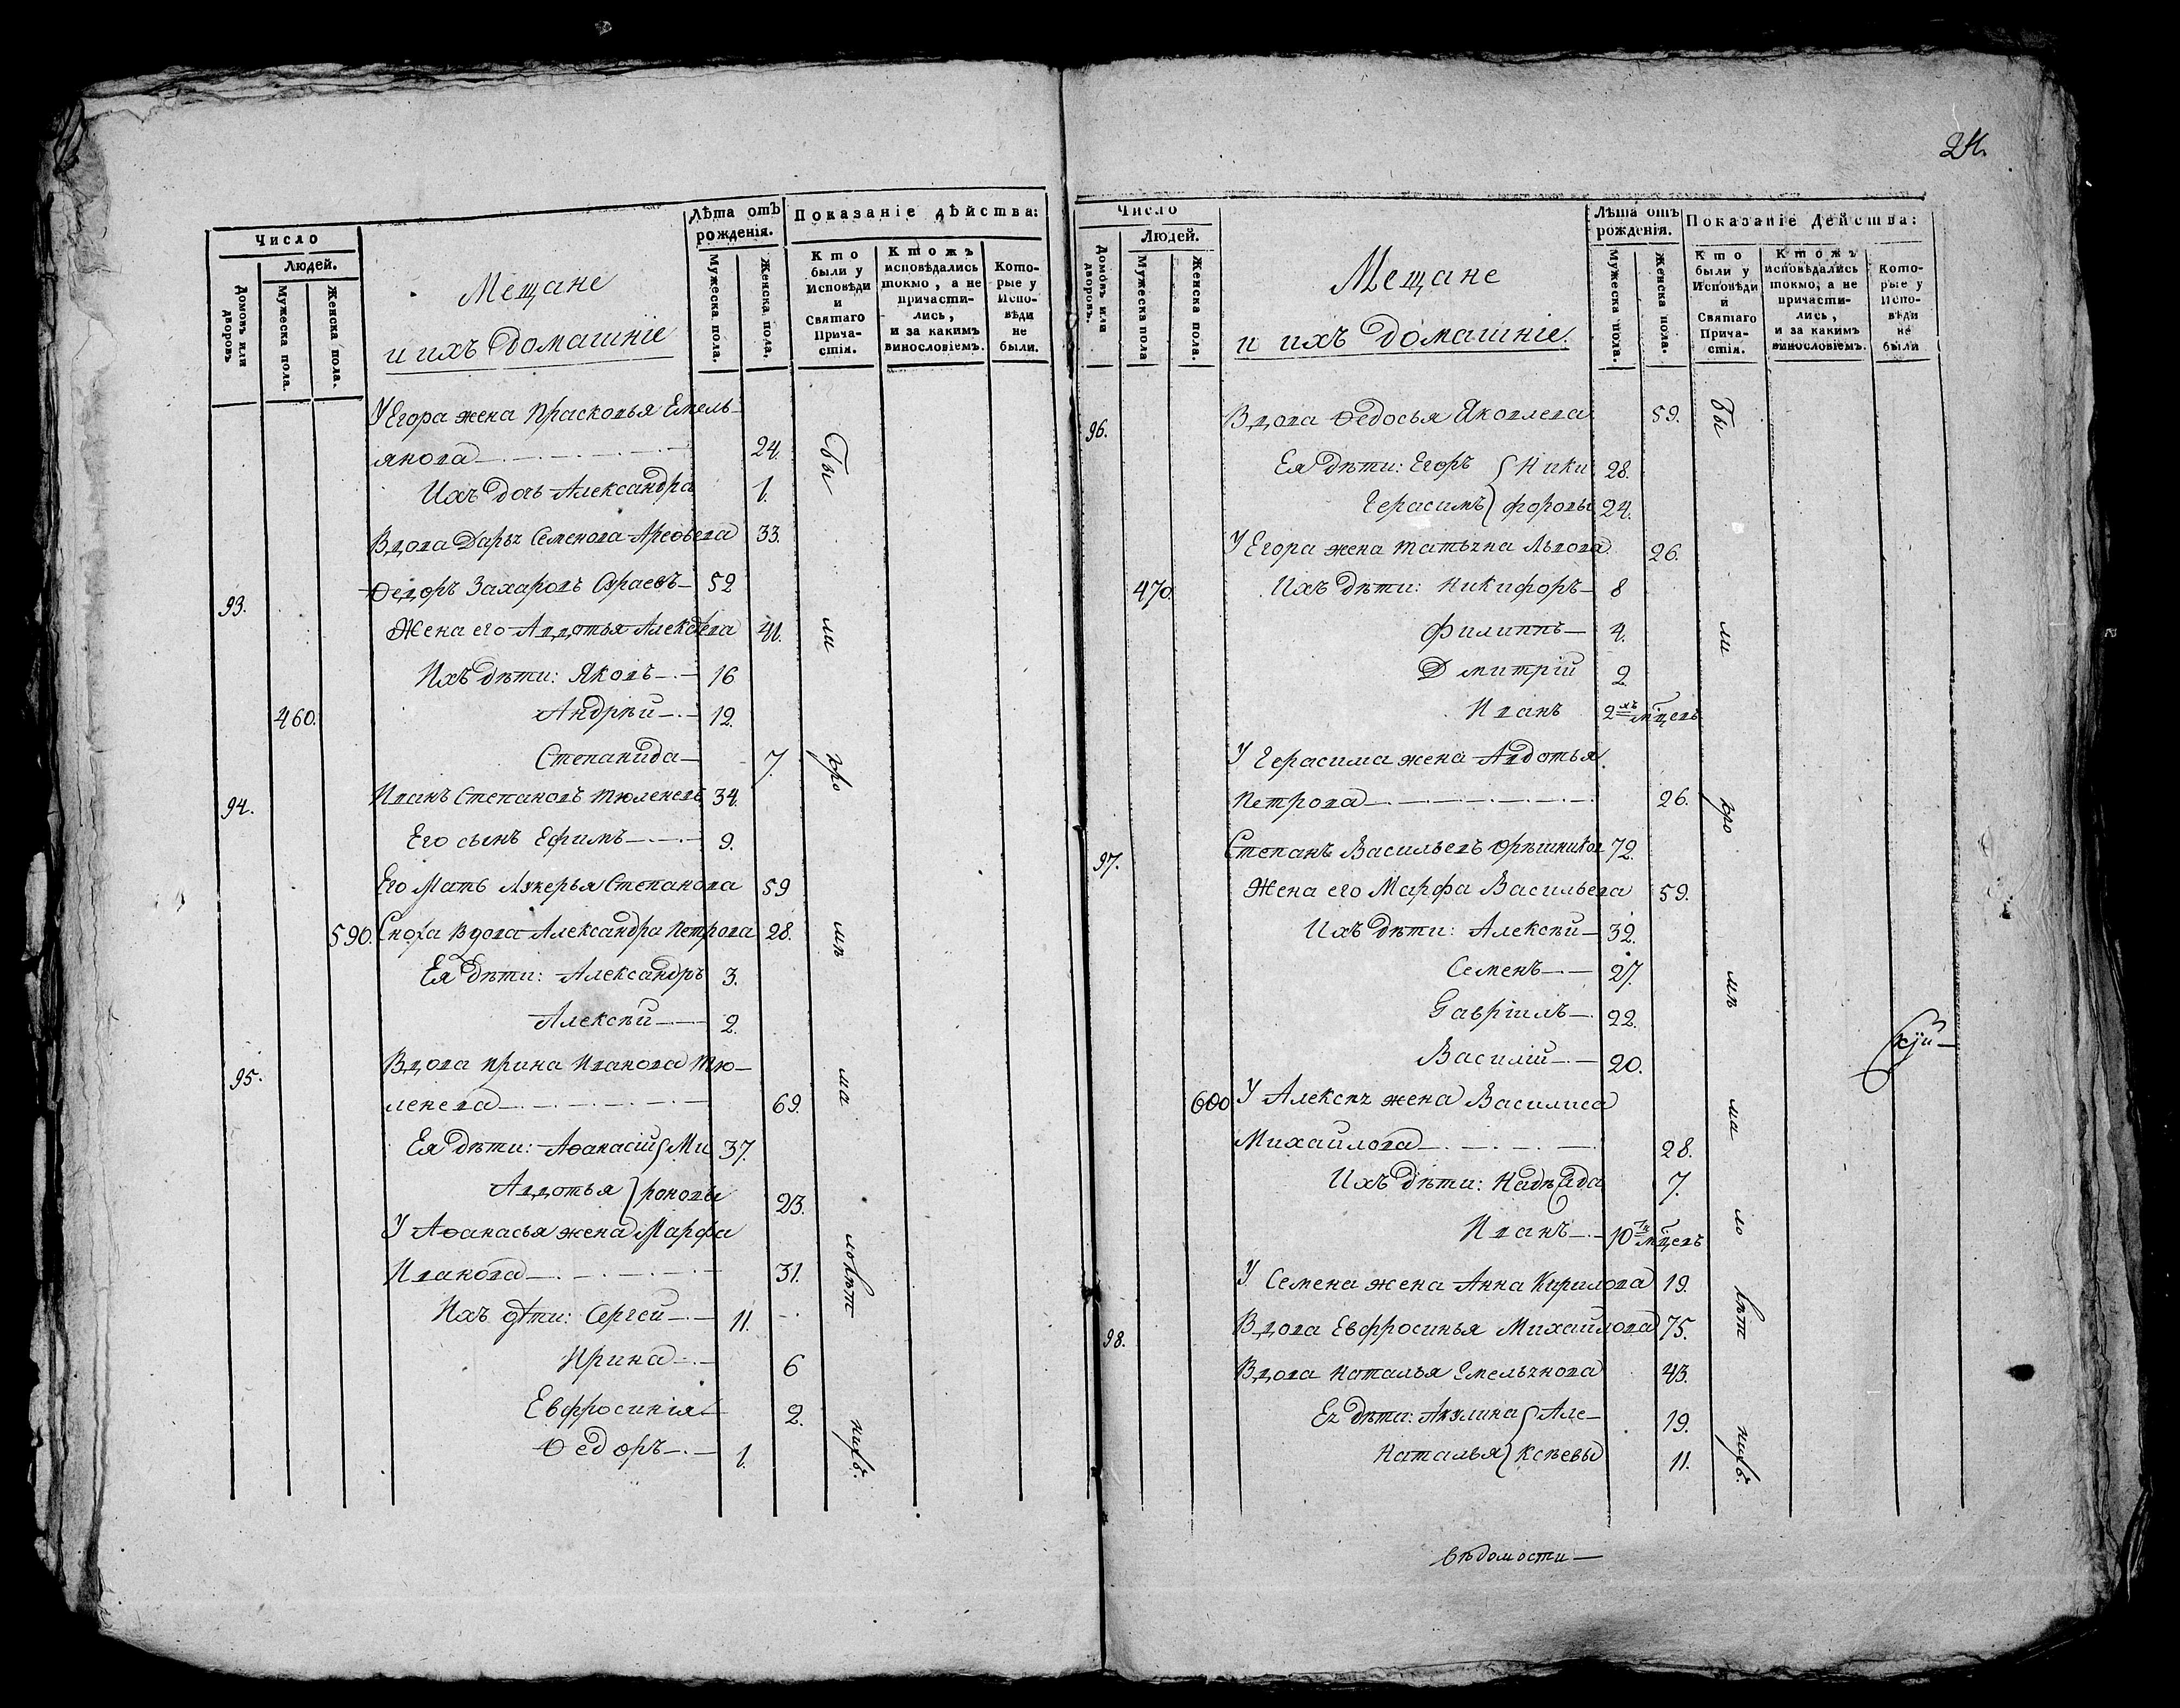 24.
Число
Людей.
Домовъ или дворовъ
Мужеска пола.
Женска пола.
Мещане
и ихъ домашніе
Лѣта отъ рожденія.
Мужеска пола.
Женска пола.
Показаніе дѣйства:
Кто были у Исповѣди и Святаго Причастія.
Ктожъ исповѣдались токмо, а не причастились, и за какимъ винословіемъ.
Которые у Исповѣди не были.
У Егора жена Прасковья Емель-
янова 24.
Ихъ дочь Александра 1.
Вдова Дарья Семенова 33.
93. Федоръ Захаровъ 52
Жена его Авдотья Алексѣева 41.
Ихъ дѣти: Яковъ 16
460. Андрѣй 12.
Степанида 7.
94. Иванъ Степановъ Тюленевъ 34.
Его сынъ Ефимъ 9.
Его Мать Лукерья Степанова 59
590. Сноха Вдова Александра Петрова 28.
Ея дѣти: Александръ 3.
Алексѣй 2.
95. Вдова Ирина Иванова Тю-
ленева 69.
Ея дѣти: Афанасій Ми 37.
Авдотья роновы 23.
У Афанасья жена Марфа
Иванова 31.
Ихъ дѣти: Сергей 11.
Ирина 6
Евфросинія 2.
Федоръ 1.
Бы
ли
Число
Людей.
Домовъ или дворовъ.
Мужеска пола
Женска пола.
Мещане
и ихъ домашніе.
Лѣта отъ рожденія.
Мужеска пола.
Женска пола.
Показаніе Действа:
Кто были у Исповѣди и Святаго Причастія.
Ктожъ исповѣдались токмо, а не причастились, и за какимъ винословіемъ.
Которые у Исповѣди не были
96. Вдова Федосья Яковлева 59.
Ея дѣти: Егоръ Ники 28.
Герасимъ форовы 24.
У Егора жена Татьяна Львова 26.
470. Ихъ дѣти: Никифоръ 8
Филиппъ 4.
Дмитрій 2
Иванъ 2хъ мцевъ
У Герасима жена Авдотья
Петрова 26.
97. Степанъ Васильевъ Орѣшников 72.
Жена его Марфа Васильева 59.
Ихъ дѣти: Алексѣй 32.
Семенъ 27.
Гавріилъ 22.
Василій 20.
600 У Алексѣя жена Василиса
Михайлова 28.
Ихъ дѣти: Надѣжда 7.
Иванъ 10ти мцевъ
У Семена жена Анна Кирилова 19.
98. Вдова Евфросинья Михайлова 75.
Вдова Наталья Емельянова 43.
Ея дѣти: Акулина Але- 19.
Наталья ксѣевы 11.
Бы
ли
вѣдомости